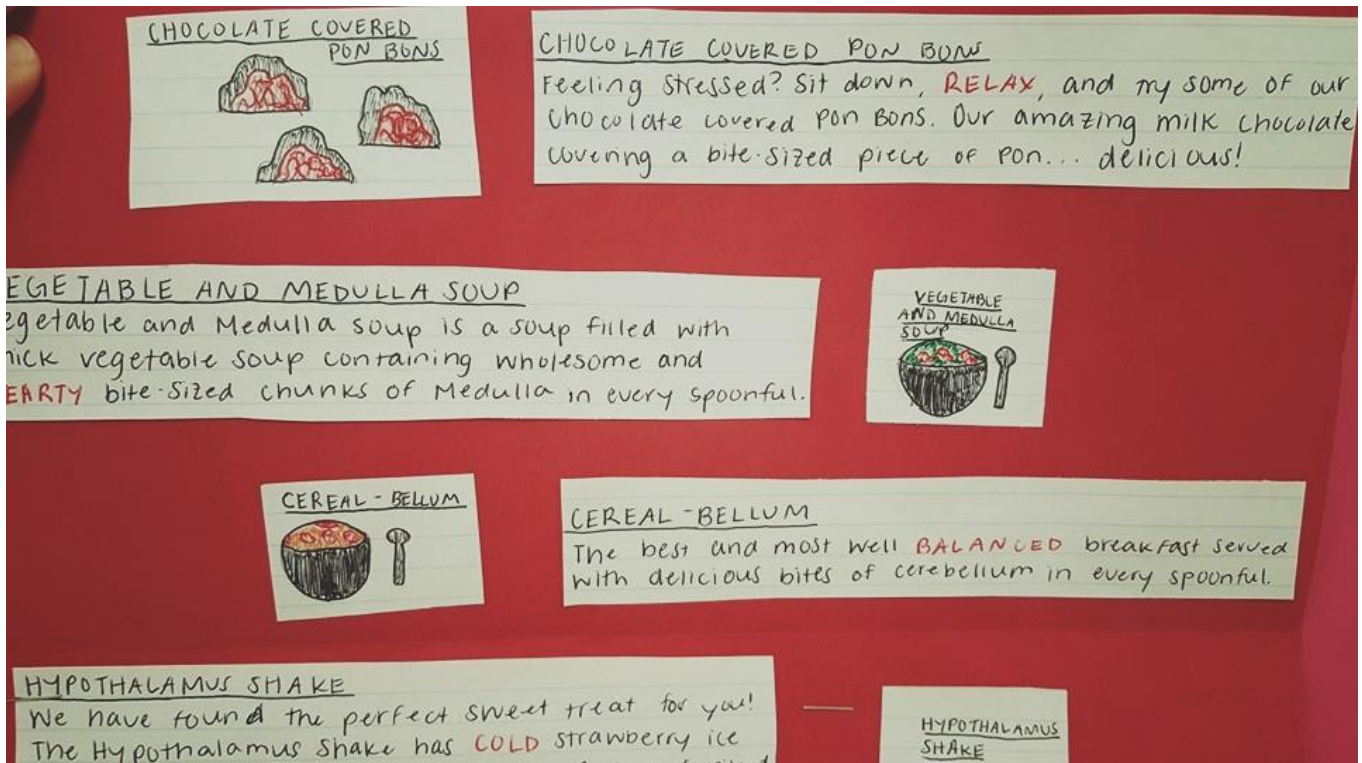 CHOCOLATE COVERED
PON BONS
CHOCOLATE COVERED PON BONS
Feeling stressed? Sit down, RELAX, and try some of our
chocolate covered Pon Bons. Our amazing milk chocolate
covering a bite-sized piece of Pon... delicious!
EGETABLE AND MEDULLA SOUP
egetable and Medulla soup is a soup filled with
hick vegetable soup containing wholesome and
EARTY bite-sized chunks of Medulla in every spoonful.
VEGETABLE
AND MEDULLA
SOUP
CEREAL-BELLUM
CEREAL-BELLUM
The best and most well BALANCED breakfast served
with delicious bites of cerebellum in every spoonful.
HYPOTHALAMUS SHAKE
We have found the perfect sweet treat for you!
The Hypothalamus Shake has COLD strawberry ice
HYPOTHALAMUS
SHAKE